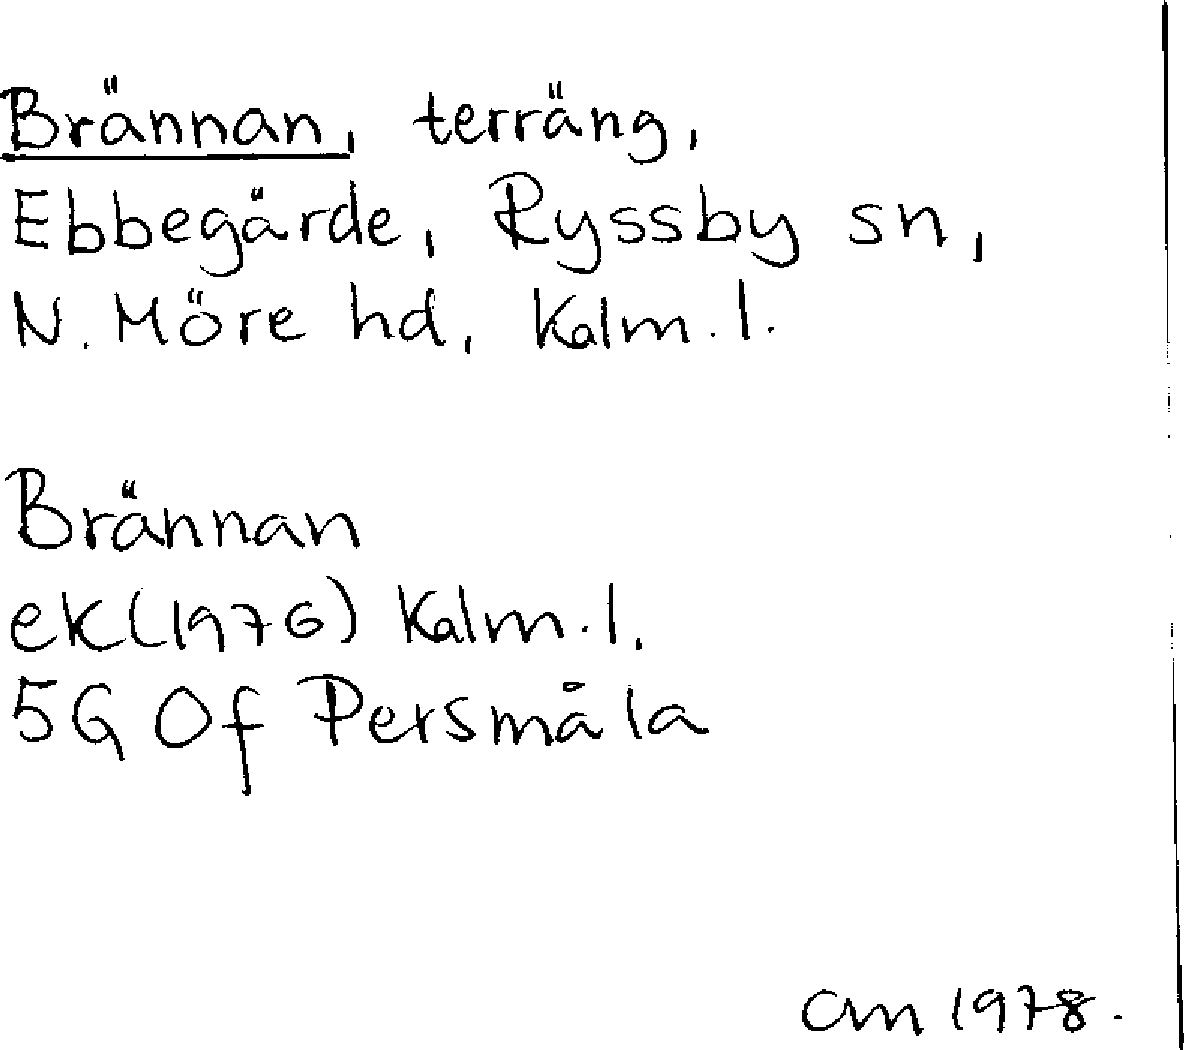 Brännan, terräng,
Ebbegärde, Ryssby sn,
N. Möre hd, Kalm. l.
Brännan
ek(1976) Kalm. l.
5G 0f Persmåla
CM 1978.